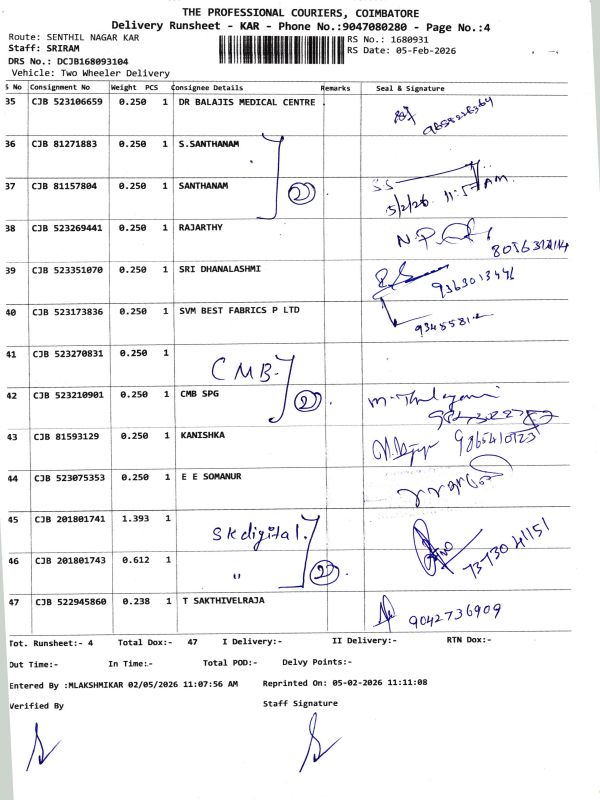 THE PROFESSIONAL COURIERS, COIMBATORE
Delivery Runsheet - KAR - Phone No.:9047080280 - Page No.:4
Route: SENTHIL NAGAR KAR
RS No.: 1680931
Staff: SRIRAM
RS Date: 05-Feb-2026
DRS No.: DCJB168093104
Vehicle: Two Wheeler Delivery
S No Consignment No Weight PCS Consignee Details Remarks Seal & Signature
35 CJB 523106659 0.250 1 DR BALAJIS MEDICAL CENTRE
36 CJB 81271883 0.250 1 S.SANTHANAM
37 CJB 81157804 0.250 1 SANTHANAM 2 SS
5/2/26 11:57 AM.
38 CJB 523269441 0.250 1 RAJARTHY N.P
39 CJB 523351070 0.250 1 SRI DHANALASHMI
9363013446
40 CJB 523173836 0.250 1 SVM BEST FABRICS P LTD
41 CJB 523270831 0.250 1
CMB.
42 CJB 523210901 0.250 1 CMB SPG 2
43 CJB 81593129 0.250 1 KANISHKA
44 CJB 523075353 0.250 1 E E SOMANUR
45 CJB 201801741 1.393 1 Sk digital.
46 CJB 201801743 0.612 1 " 2 73730 41151
47 CJB 522945860 0.238 1 T SAKTHIVELRAJA 9042736909
Tot. Runsheet:- 4 Total Dox:- 47 I Delivery:- II Delivery:- RTN Dox:-
Out Time:- In Time:- Total POD:- Delvy Points:-
Entered By :MLAKSHMIKAR 02/05/2026 11:07:56 AM Reprinted On: 05-02-2026 11:11:08
Verified By Staff Signature